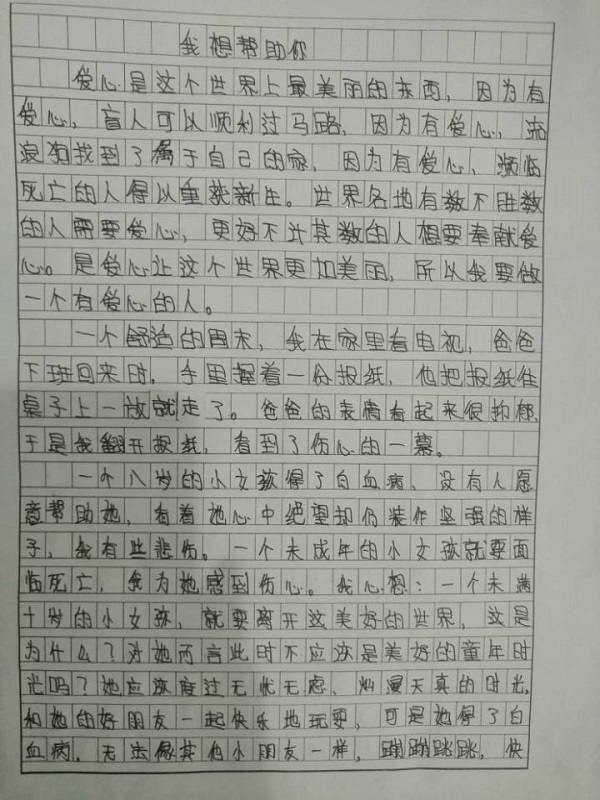 我想帮助你
爱心是这个世界上最美丽的东西，因为有
爱心，盲人可以顺利过马路，因为有爱心，流
浪狗找到了属于自己的家，因为有爱心，濒临
死亡的人得以重获新生。世界各地有数不胜数
的人需要爱心，更好不计其数的人想要奉献爱
心。是爱心让这个世界更加美丽，所以我要做
一个有爱心的人。
一个舒适的周末，我在家里看电视，爸爸
下班回来时，手里握着一份报纸，他把报纸往
桌子上一放就走了。爸爸的表情看起来很抑郁，
于是我翻开报纸，看到了伤心的一幕。
一个八岁的小女孩得了白血病，没有人愿
意帮助她，看着她心中绝望却仍装作坚强的样
子，我有些悲伤。一个未成年的小女孩就要面
临死亡，我为她感到伤心。我心想：一个未满
十岁的小女孩，就要离开这美好的世界，这是
为什么？对她而言此时不应该是美好的童年时
光吗？她应该度过无忧无虑、灿漫天真的时光，
和她的好朋友一起快乐地玩耍，可是她得了白
血病，无法像其他小朋友一样，蹦蹦跳跳，快